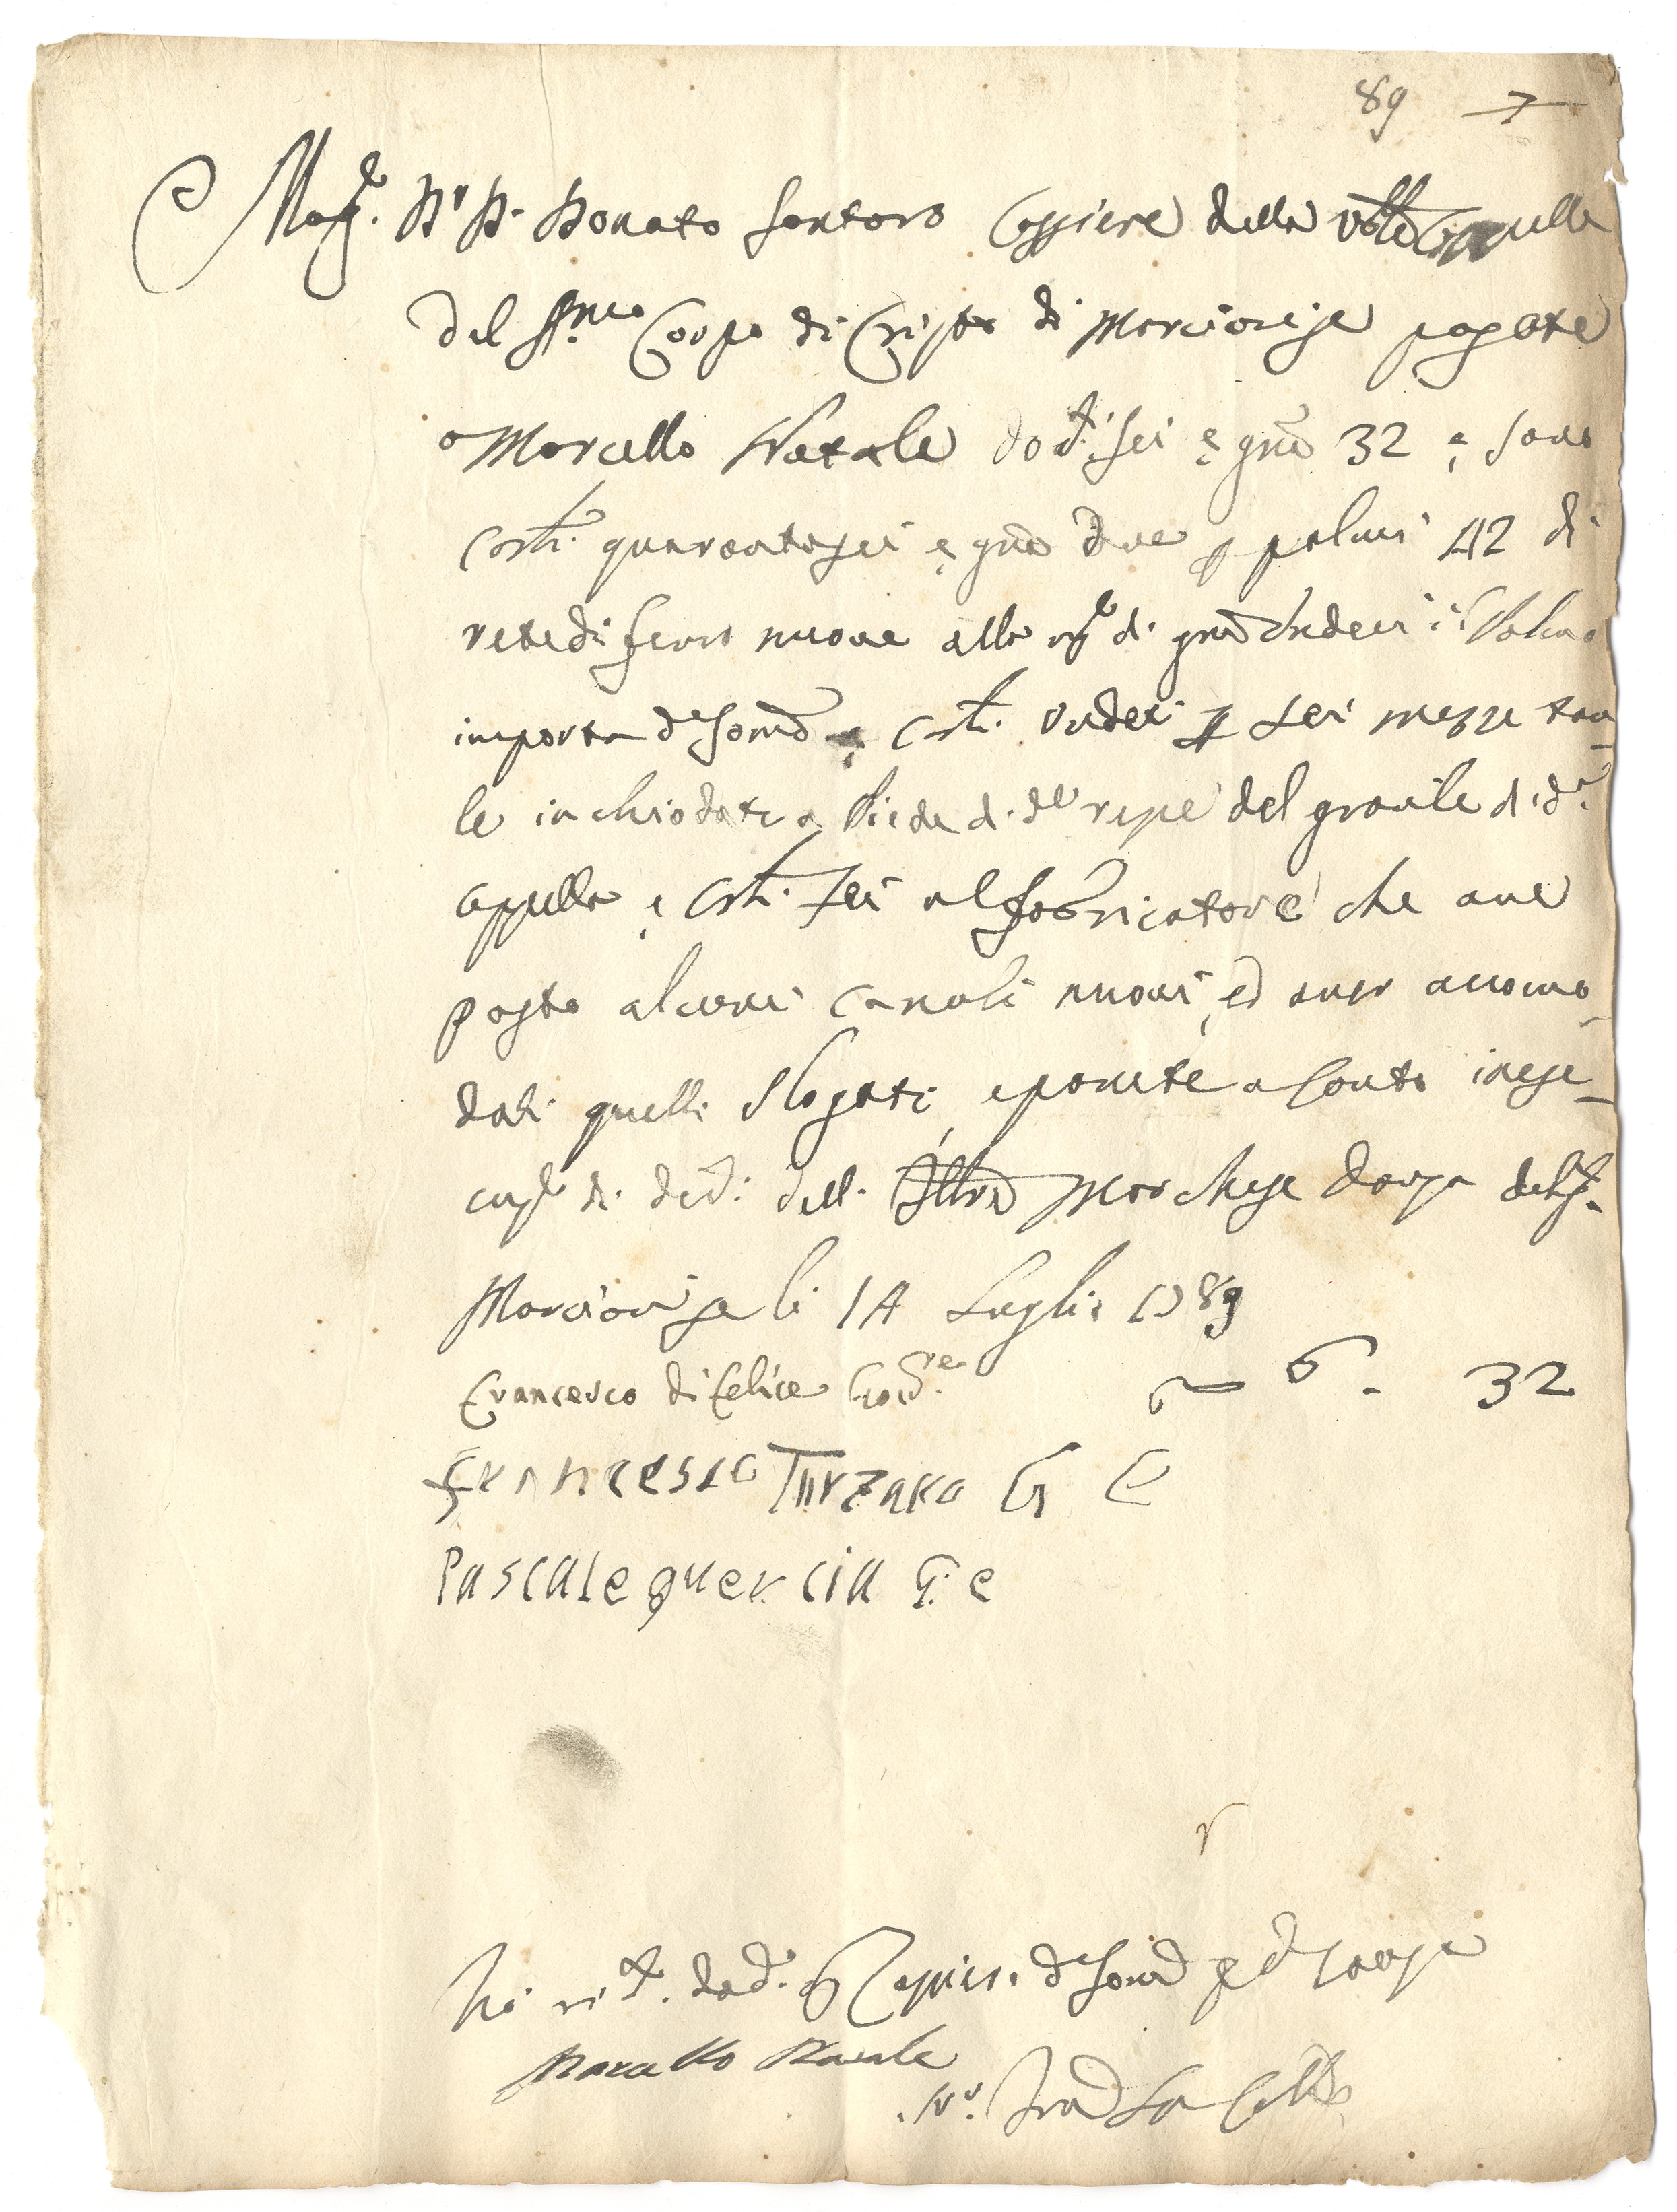 89
Mag.co D.r D. Donato Santoro Cassiere della Capella
del SS.mo Corpo di Cristo di Marcianise pagate
a Marcello Natale doc.ti sei e grna 32 e sono
carli. quarantasei e grna due p palmi 42 di
rete di ferro nuove alla di grna undeci il Palmo
importa d.a soma e carli. undeci p sei mezze tavo-
le inchiodate a Piede d. d.e repe del granile di d.a
Cappella e carli. sei al fabricatore che ave
posto alcuni canali nuovi, ed aver accomo-
dati quelli slogati, e ponete a conto inese-
cuz.e di ded. dell. Ill.re Marchese
Marcianise li 14 Luglio 1789
Francesco di Felice Gov.re
6 - 32
Francesco Turzano G E
Pascale quercia G. e
Marcello Natale